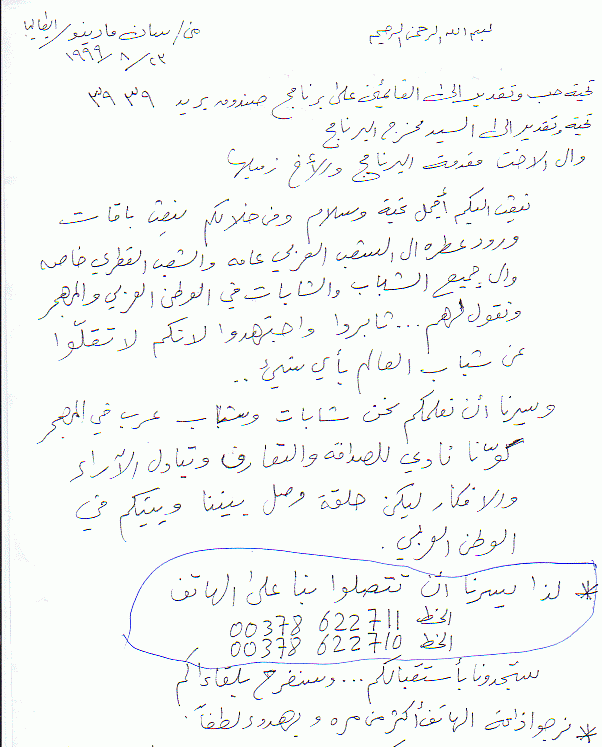 بسم الله الرحمن الرحيم
من/ سان مارينو/ ايطاليا
١٩٩٩/٨/٢٣
تحية حب وتقدير الى القائمين على برنامج صندوق بريد ٣٩ ٣٩
تحية وتقدير الى السيد مخرج البرنامج
وال الاخت مقدمة البرنامج والأخ زميلها
نبعث اليكم أجمل تحية وسلام ومن خلالكم نبعث باقات
ورود عطره ال الشعب العربي عامه والشعب القطري خاصه
وال جميع الشباب والشابات في الوطن العربي والمهجر
ونقول لهم... ثابروا واجتهدوا لانكم لا تقلّوا
عن شباب العالم بأي شيئ..
ويسرنا ان نعلمكم نحن شابات وشباب عرب في المهجر
كوّنا نادي للصداقه والتعارف وتبادل الآراء
والافكار ليكن حلقة وصل بيننا وبينكم في
الوطن العربي.
* لذا يسرنا ان تتصلوا بنا على الهاتف
الخط 00378 622711
الخط 00378 622710
ستجدونا بأستقبالكم... وسنفرح بلقاءاكم
* نرجو اذاعة الهاتف أكثر من مره وبهدوء لطفاً.